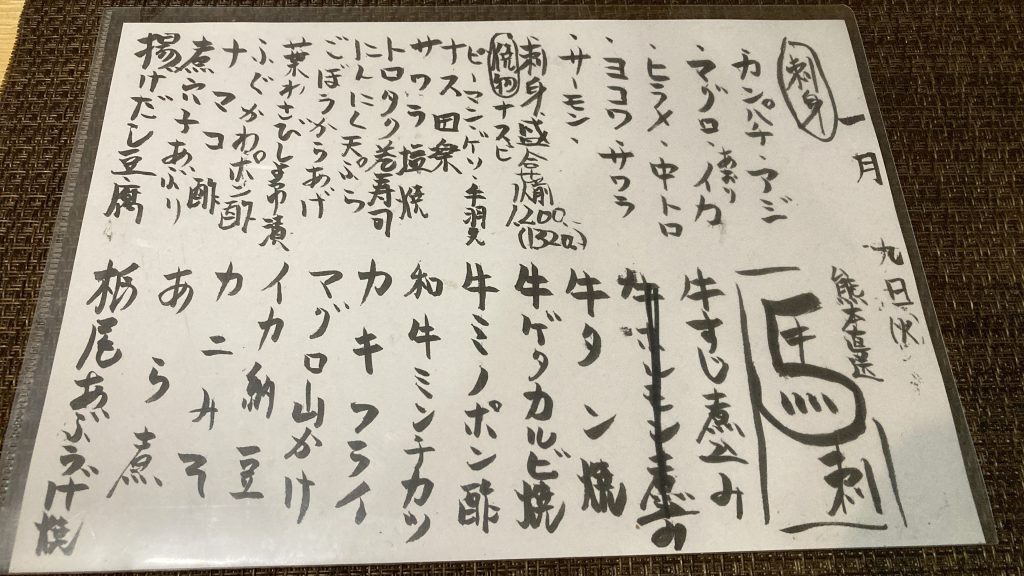 一月九日(火)
刺身
カンパチ・アジ
・マグロ・あおりイカ
・ヒラメ・中トロ
・ヨコワ・サワラ
・サーモン・
・刺身盛合せ一人前1200(1320)
焼物 ナスビ
ピーマン・ゲソ・手羽先
ナス田楽
サワラ塩焼
トロタク巻寿司
にんにく天ぷら
ごぼうからあげ
葉わさびしょう油漬
ふぐかわポン酢
ナマコ酢
煮穴子あぶり
揚げだし豆腐
熊本直送
馬刺
牛すじ煮込み
牛タン焼
牛ゲタカルビ焼
牛ミノポン酢
和牛ミンチカツ
カキフライ
マグロ山かけ
イカ納豆
カニみそ
あら煮
栃尾あぶらげ焼